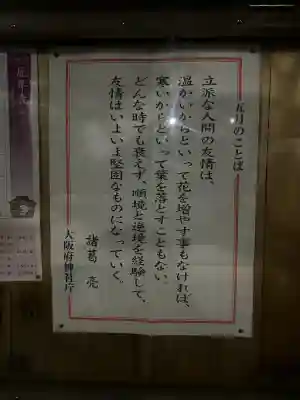 五月のことば
立派な人間の友情は、
温かいからといって花を増やす事もなければ、
寒いからといって葉を落とすこともない。
どんな時でも衰えず、順境と逆境を経験して、
友情はいよいよ堅固なものになっていく。
諸葛 亮
大阪府神社庁